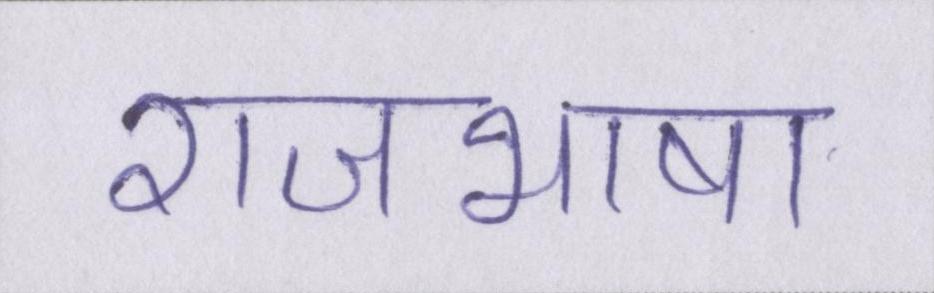 राजभाषा